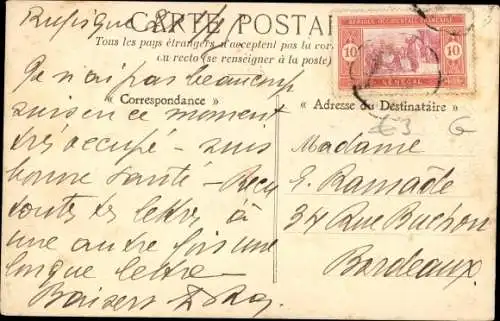 Rufisque
CARTE POSTALE
Tous les pays étrangers n'acceptent pas la cor
au recto (se renseigner à la poste)
AFRIQUE OCCIDENTALE FRANÇAISE
10 10
SÉNÉGAL
« Correspondance »
« Adresse du Destinataire »
€3 G
Je n'ai pas beaucoup
suis en ce moment
très occupé - suis
bonne santé - Reçu
toutes tes lettres, à
une autre fois une
longue lettre
Baisers
Madame
E. Ramade
34 Rue Buchon
Bordeaux.